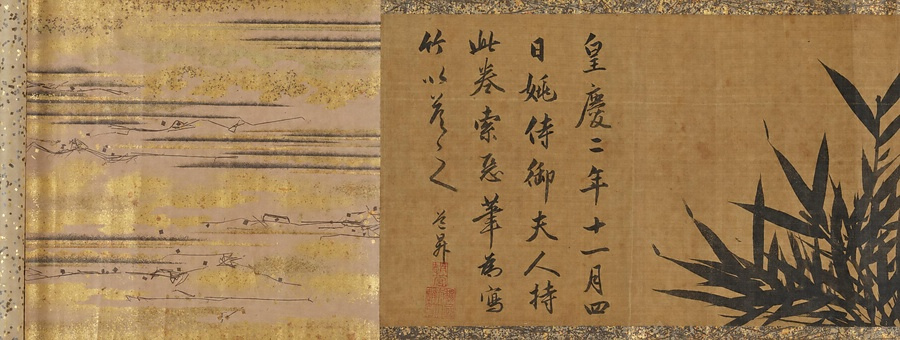 皇慶二年十一月四
日姚侍御夫人持
此卷索惡筆為寫
竹以答之
道昇